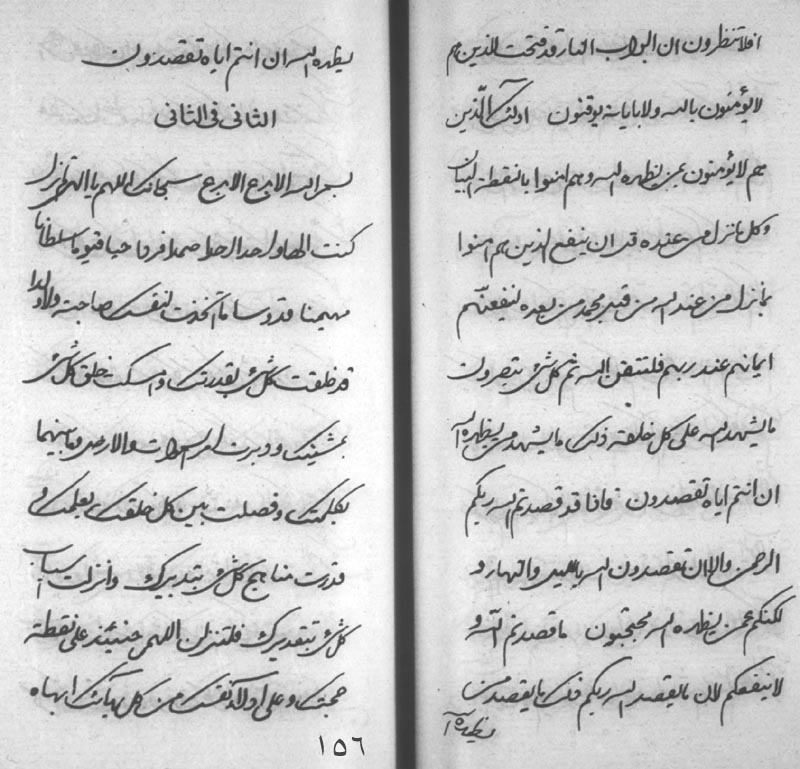 افلا تنظرون ان ابواب النار قد فتحت للذين هم
لا يؤمنون بالله ولا بآياته يوقنون اولئك الذين
هم لا يؤمنون بمن يظهره الله وهم امنوا بالنقطة البيان
وكل ما نزل من عنده قل ان ينفع الذين هم امنوا
بما نزل من عند الله من قبل بمحمد من بعده لينفعنهم
ايمانهم عند ربهم فلتتقن الله ثم كل شئ تبصرون
ما يشهد الله على كل خلقه ذلك ما يشهد من يظهره الله
ان انتم اياه تقصدون فاذا قد قصدتم الله ربكم
الرحمن والا ان تقصدون الله بالليل والنهار و
لكنكم عمن يظهره الله محتجبون ما قصدتم الله و
لا ينفعكم لان ما يقصد الله ربكم ذلك ما يقصد من
يظهره ا
يظهره الله ان انتم اياه تقصدون
الثانى فى الثانى
بسم الله الابدع الابدع سبحانك اللهم يا الهى لم تزل
كنت الها واحدا احدا صمدا فردا حيا قيوما سلطانا
مهيمنا قدوسا ما اتخذت لنفسك صاحبة ولا ولدا
قد خلقت كل شئ بقدرتك وامسكت خلق كل شئ
بمشيتك ودبرت امر السموات والارض وما بينهما
بحكمتك وفصلت بين كل خلقك بعلمك و
قدرت مناهج كل شئ بتدبيرك وانزلت اسباب
كل شئ بتقديرك فلتنزلن اللهم حينئذ على نقطة
حجتك وعلى ادلاء نفسك من كل بهائك ابهاه
١٥٦